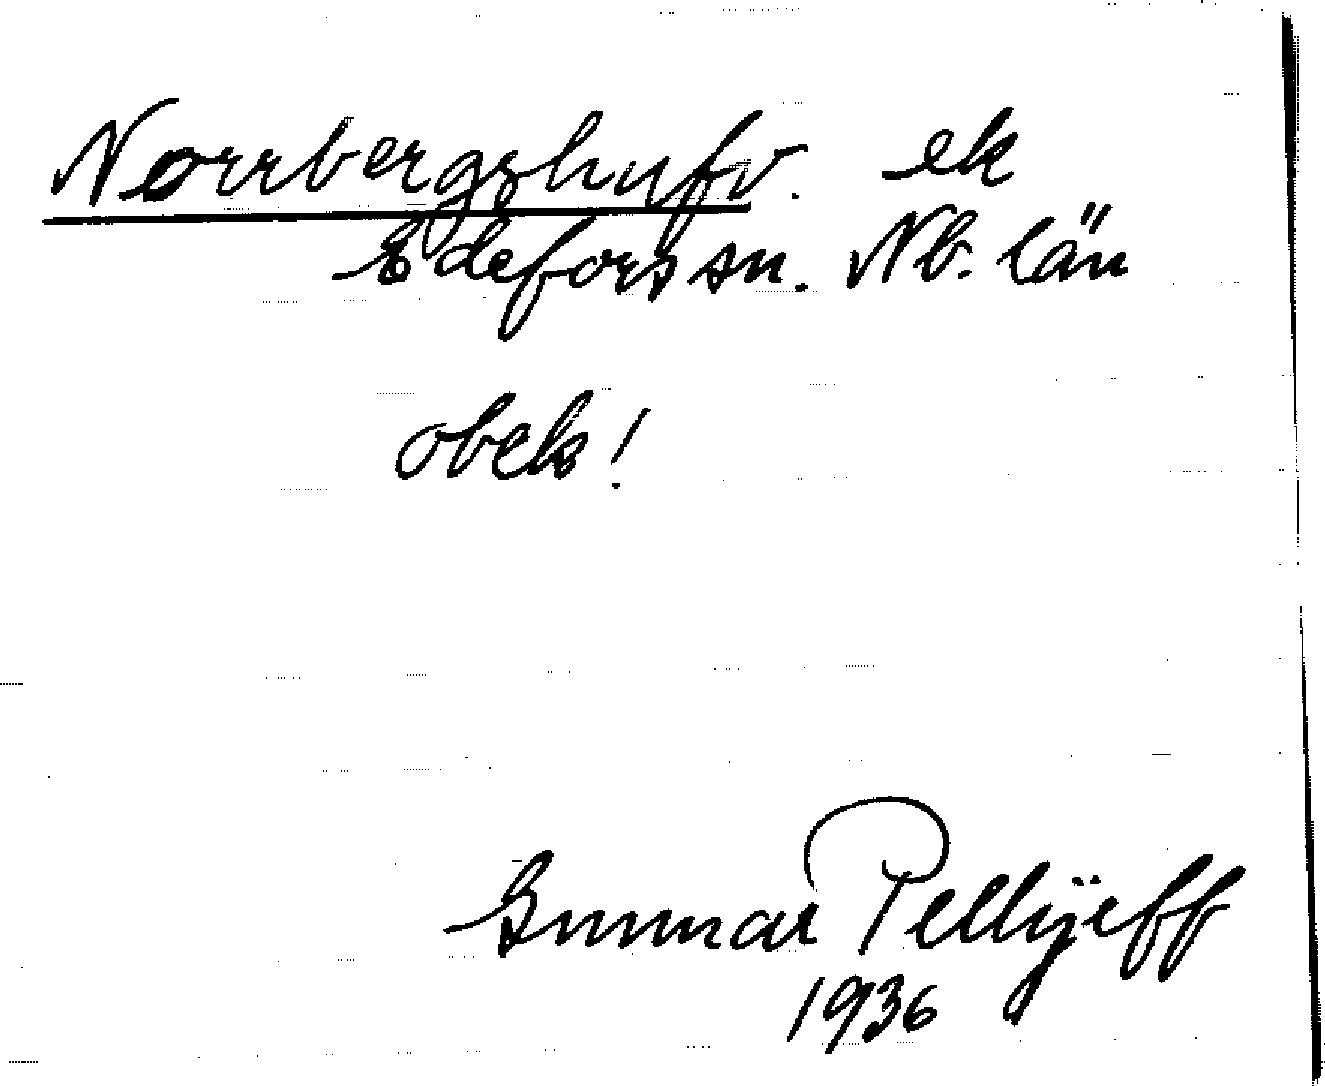 Norrbergshufv. ek
Edefors sn. Nb. län
obek!
Gunnar Pellijeff
1936